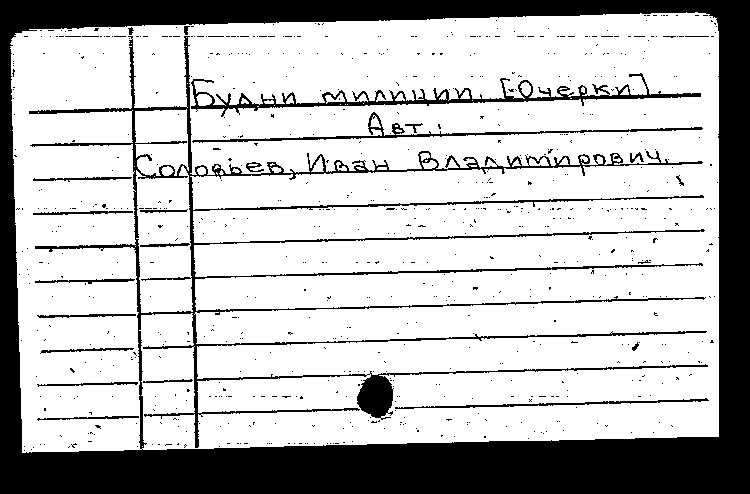 Будни милиции. [Очерки].
Авт.:
Соловьев, Иван Владимирович.